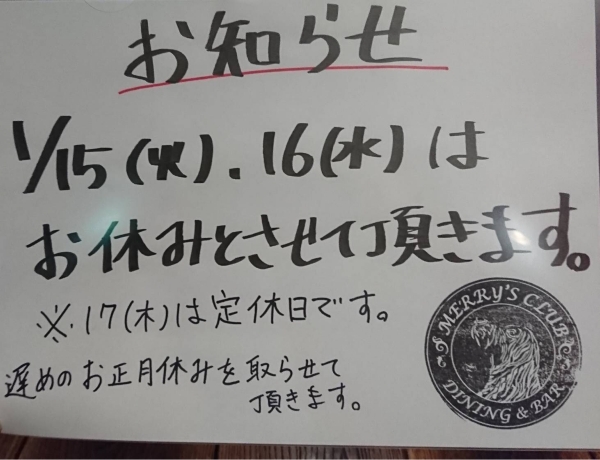 お知らせ
1/15(火).16(水)は
お休みとさせて頂きます。
※.17(木)は定休日です。
遅めのお正月休みを取らせて
頂きます。
MERRY'S CLUB
DINING & BAR